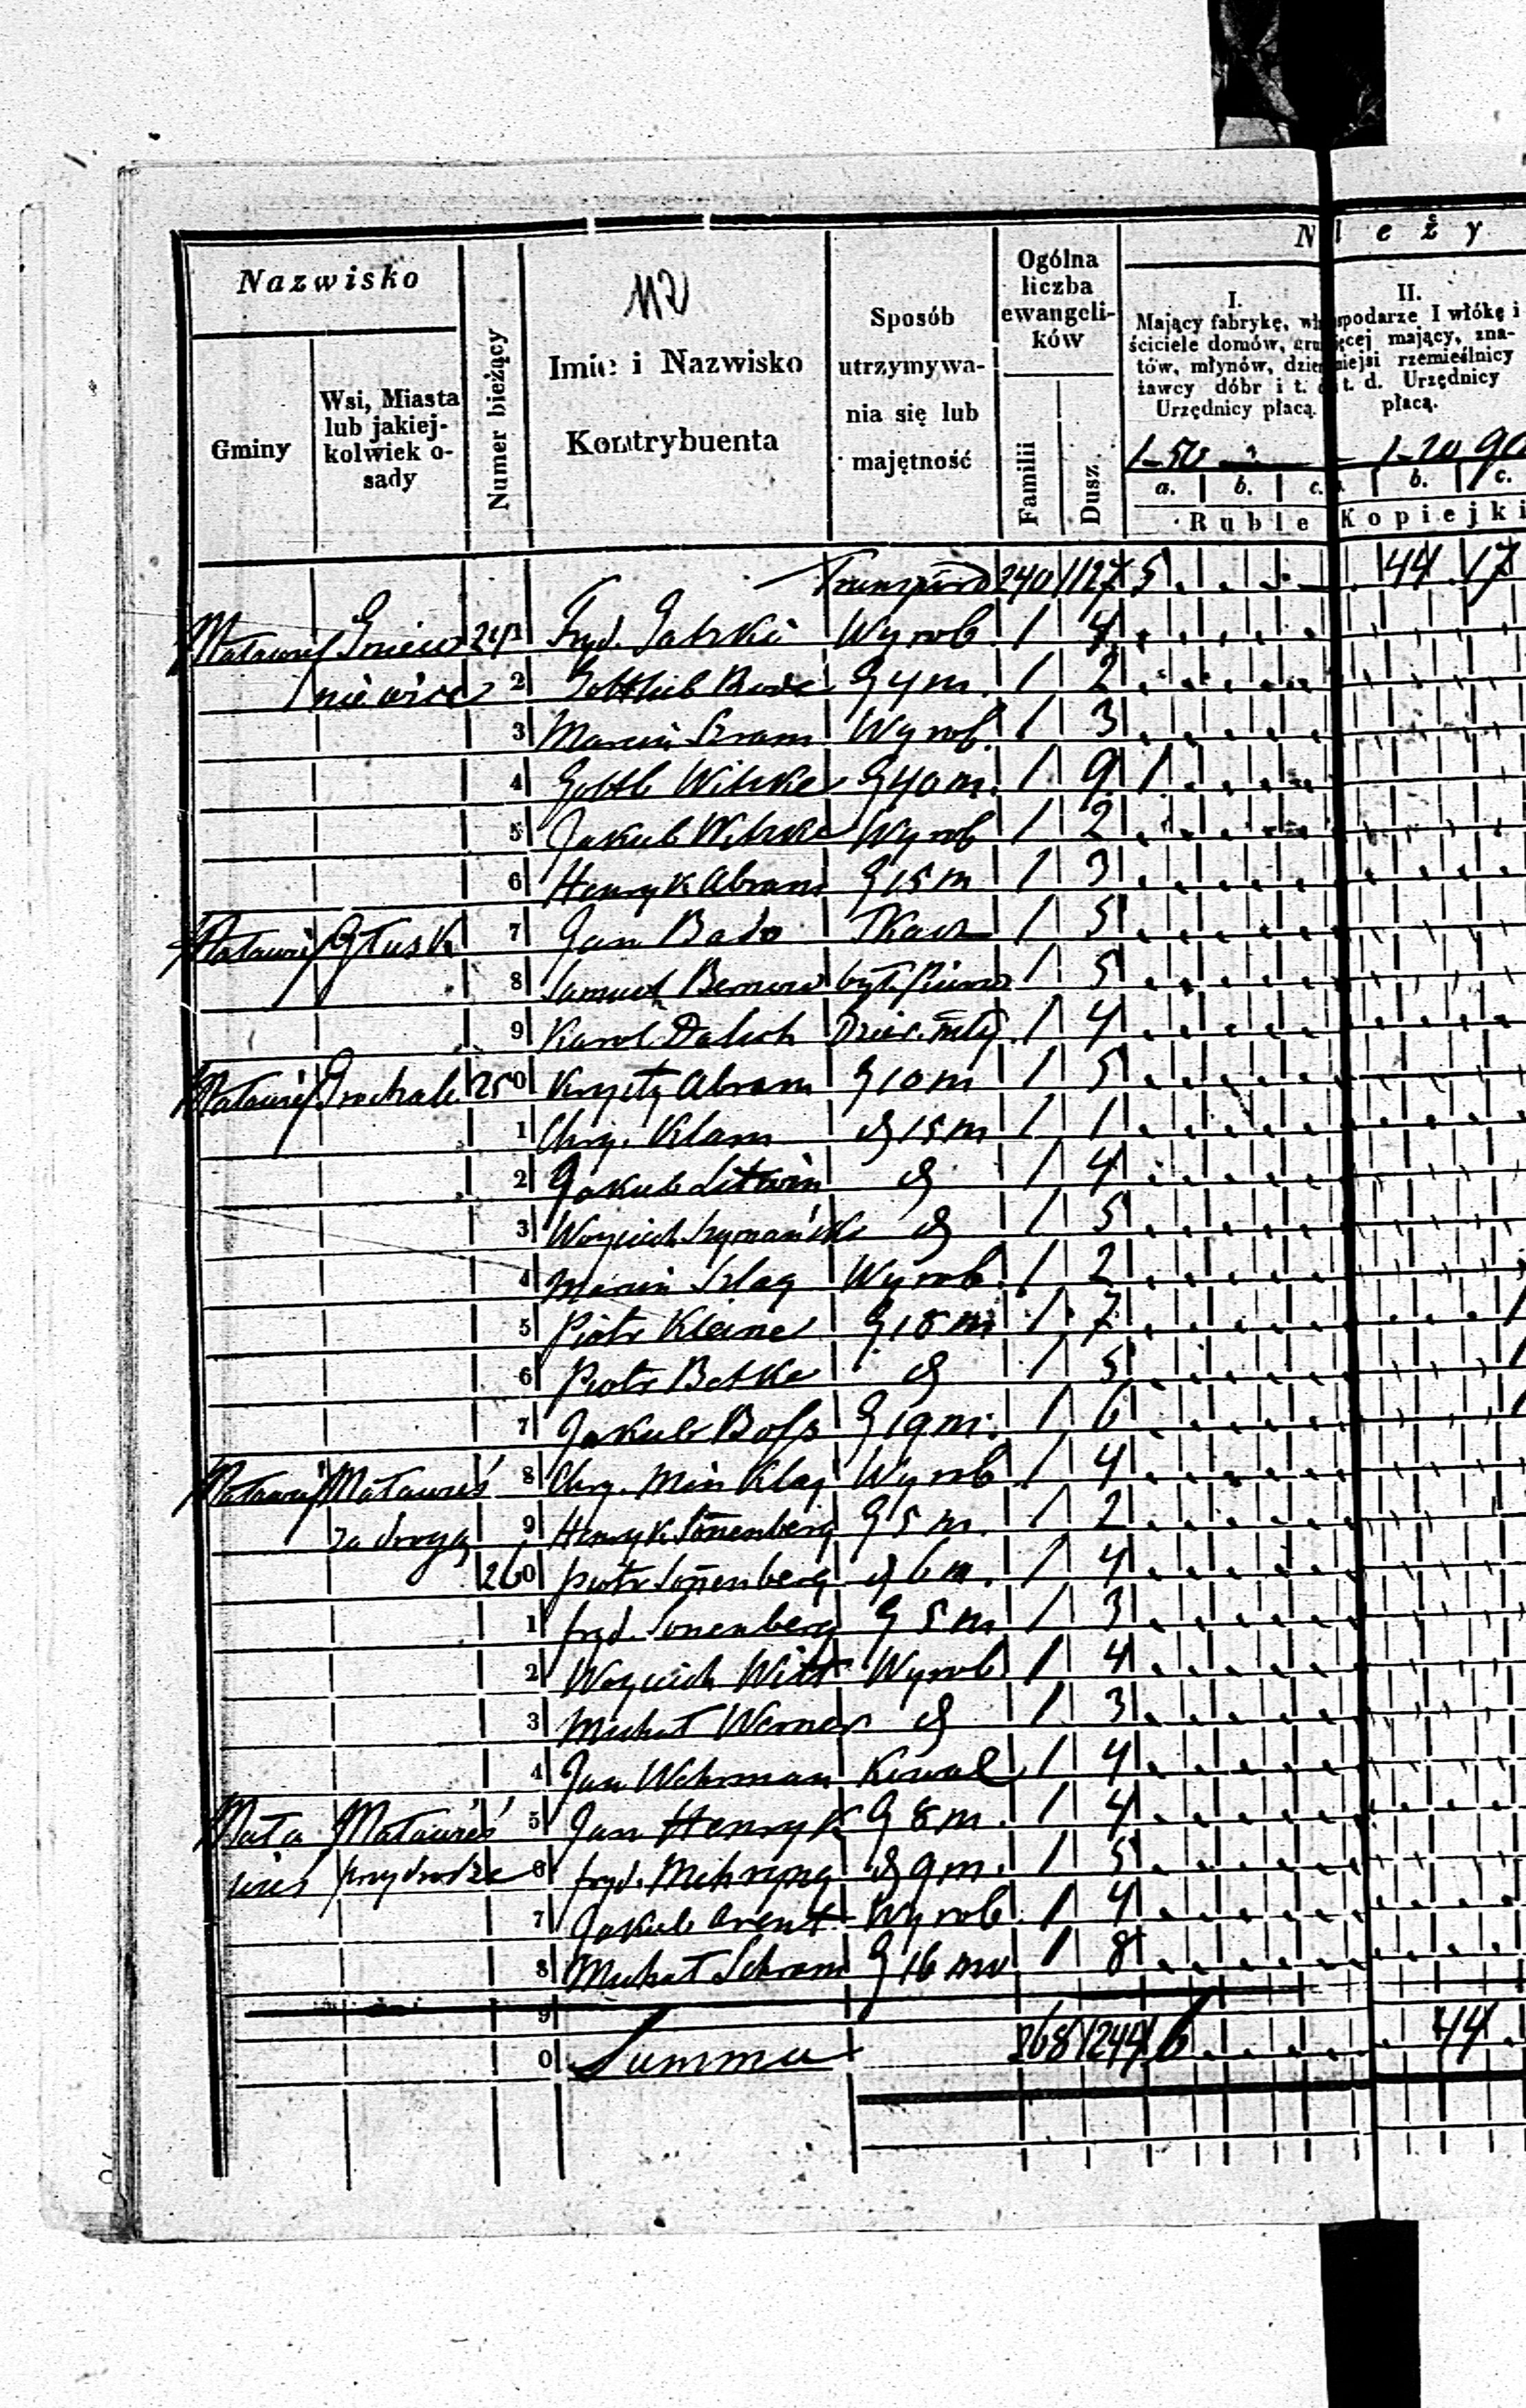 N leży
Nazwisko
Gminy
Wsi, Miasta
lub jakiej-
kolwiek o-
sady
Numer bieżący
Imie i Nazwisko
Kontrybuenta
Sposób
utrzymywa-
nia się lub
majętność
Ogólna
liczba
ewangeli-
ków
Familii
Dusz
I.
Mający fabrykę, wł
ściciele domów, gru
tów, młynów, dzier
żawcy dóbr i t. d
Urzędnicy płacą.
1-50
a. b. c.
Ruble
II.
podarze I włókę i
ęcej mający, zna-
niejsi rzemieślnicy
t. d. Urzędnicy
płacą.
1-20 90
b. c.
Kopiejki
Transport 240 1127 5 44 17
Gniew 241 Fryd. Wyrob. 1 4
niewice 2 Gottlieb G 4 m. 1 2
3 Marcin Szram Wyrob. 1 3
4 Gottl Witzke G 40 m. 1 9 1
5 Jakub Witzke Wyrob 1 2
6 Henryk Abram G 15 m 1 3
Głusk 7 Jan Tkacz 1 5
8 Samuel 1 5
9 Karol Młÿ. 1 4
Grochale 250 Krysty Abram G 10 m 1 5
1 Chry. Klam 15 m 1 1
2 Jakub Litwin 1 4
3 Woyciech Szymański 1 5
4 Marcin Szlag Wyrob. 1 2
5 Piotr Kleine G 18 m 1 7
6 Piotr Betke 1 5
7 Jakub Boss G 19 m. 1 6
Maławieś 8 Chry. Wyrob 1 4
za drogą 9 Henryk Sonenberg G 5 m. 1 2
260 Piotr Sonenberg 6 m. 1 4
1 fryd. Sonenberg G 5 m 1 3
2 Woyciech Witt Wyrob. 1 4
3 Michał Werner 1 3
4 Jan Wehrman Kowal 1 4
Mała Maławieś 5 Jan Henryk G 8 m. 1 4
wieś przydrodze 6 fryd. 9 m. 1 5
7 Jakub Arent Wyrob. 1 4
8 Michał Schram G 16 m 1 8
9
0 Summa 268 1244 6 44